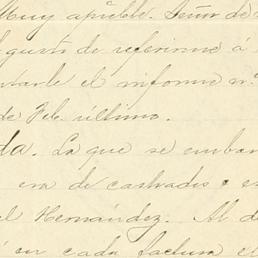 Muy apreble. Señor de
l gusto de referirme á
ntarle el informe nº
de Feb. último.
da. La que se embar
era de castrados e es
el Hernández. Al d
en cada factura e